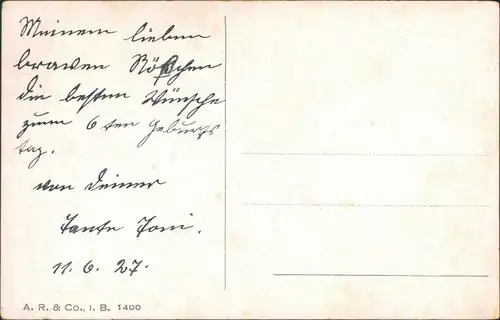 Meinem lieben
braven Rößchen
die besten Wünsche
zum 6ten Geburts
tag.
von deiner
Tante Toni.
11.6.27.
A. R. & Co., i. B. 1400